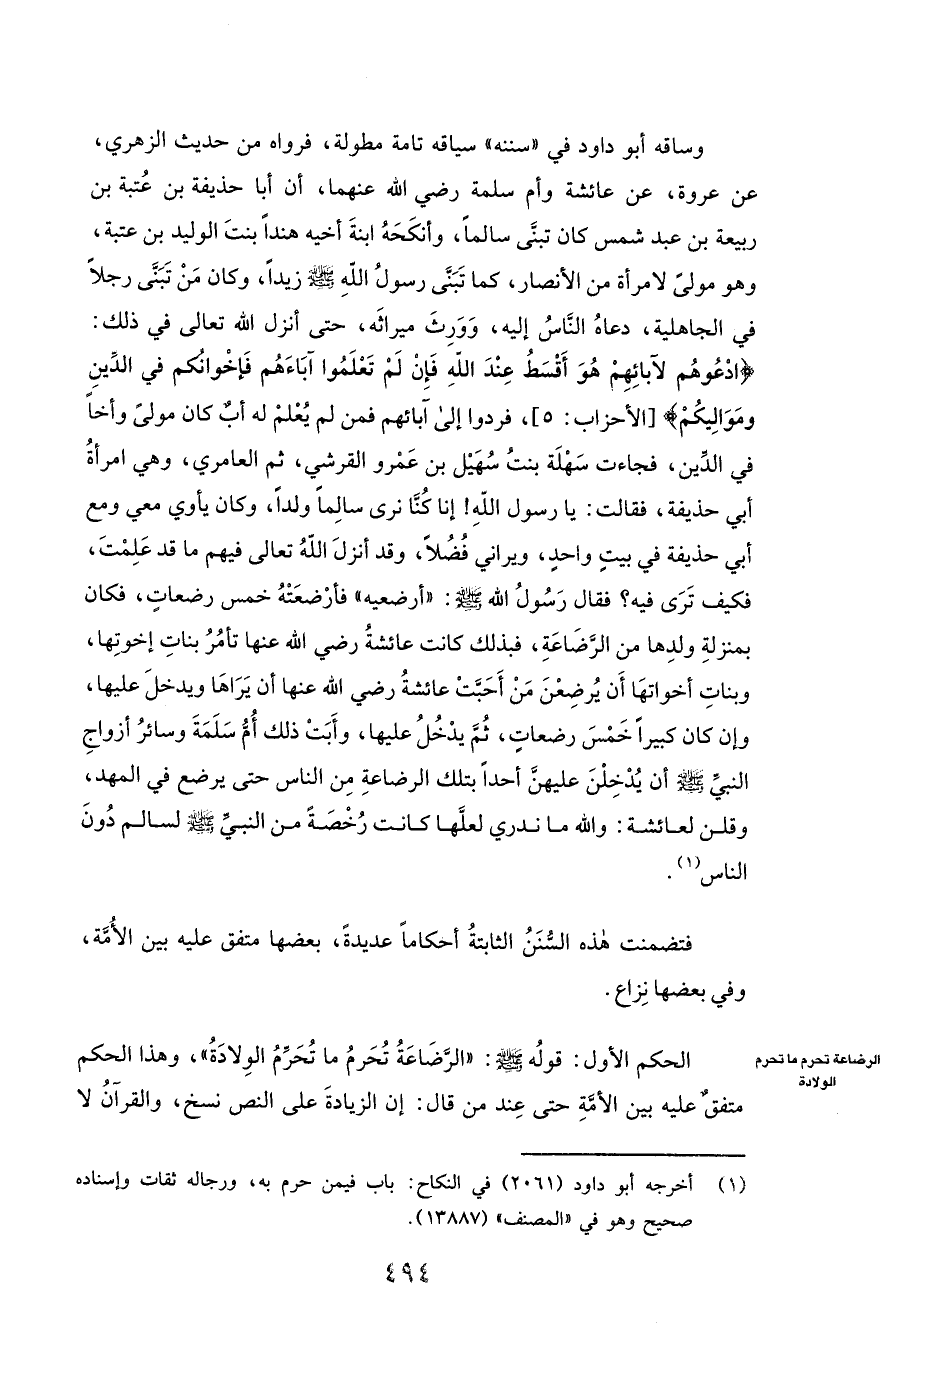 وساقه أبو داود في «سننه» سياقه تامة مطولة، فرواه من حديث الزهري،
عن عروة، عن عائشة وأم سلمة رضي الله عنهما، أن أبا حذيفة بن عُتبة بن
ربيعة بن عبد شمس كان تبنَّى سالماً، وأنكَحَهُ ابنةَ أخيه هنداً بنتَ الوليد بن عتبة،
وهو مولىً لامرأة من الأنصار، كما تَبَنَّى رسولُ اللَّهِ ﷺ زيداً، وكان مَنْ تَبَنَّى رجلاً
في الجاهلية، دعاهُ النَّاسُ إليه، وَوَرِثَ ميراثَه، حتى أنزل الله تعالى في ذلك:
﴿ادْعُوهُم لآبائِهِمْ هُوَ أَقْسَطُ عِنْدَ اللَّهِ فَإِنْ لَمْ تَعْلَمُوا آبَاءَهُم فَإِخْوانُكم في الدِّينِ
ومَوَالِيكُمْ﴾ [الأحزاب: ٥]، فردوا إلى آبائهم فمن لم يُعْلمْ له أبٌ كان مولىً وأخاً
في الدِّين، فجاءت سَهْلَة بنتُ سُهَيْل بن عَمْرو القرشي، ثم العامري، وهي امرأةُ
أبي حذيفة، فقالت: يا رسول اللَّهِ! إنا كُنَّا نرى سالِماً ولداً، وكان يأوي معي ومع
أبي حذيفة في بيتٍ واحدٍ، ويراني فُضُلاً، وقد أنزلَ اللَّهُ تعالى فيهم ما قد عَلِمْتَ،
فكيف تَرَى فيه؟ فقال رَسُولُ الله ﷺ: «أرضعيه» فأرْضعَتْهُ خمس رضعاتٍ، فكان
بمنزلةِ ولدِها من الرَّضَاعَةِ، فبذلك كانت عائشةُ رضي الله عنها تأمُرُ بناتِ إخوتِها،
وبناتِ أخواتهَا أن يُرضِعْنَ مَنْ أَحَبَّتْ عائشةُ رضي الله عنها أن يَرَاهَا ويدخلَ عليها،
وإن كان كبيراً خَمْسَ رضعاتٍ، ثُمَّ يدْخُلُ عليها، وأَبَتْ ذلك أُمُّ سَلَمَةَ وسائرُ أزواجِ
النبيِّ ﷺ أن يُدْخِلْنَ عليهنَّ أحداً بتلك الرضاعةِ مِن الناس حتى يرضع في المهد،
وقلـن لعـائشـة: والله مـا نـدري لعلَّهـا كـانـت رُخْصَـةً مـن النبـيِّ ﷺ لسـالـم دُونَ
الناس(١).
فتضمنت هٰذه السُّنَنُ الثابتةُ أحكاماً عديدةً، بعضها متفق عليه بين الأُمَّة،
وفي بعضها نِزاع.
الحكم الأول: قولُه ﷺ: «الرَّضَاعَةُ تُحَرمُ ما تُحَرِّمُ الوِلادَةُ»، وهذا الحكم
متفقٌ عليه بين الأمَّةِ حتى عِند من قال: إن الزيادةَ على النص نسخ، والقرآنُ لا
الرضاعة تحرم ما تحرم
الولادة
(١) أخرجه أبو داود (٢٠٦١) في النكاح: باب فيمن حرم به، ورجاله ثقات وإسناده
صحيح وهو في «المصنف» (١٣٨٨٧).
٤٩٤